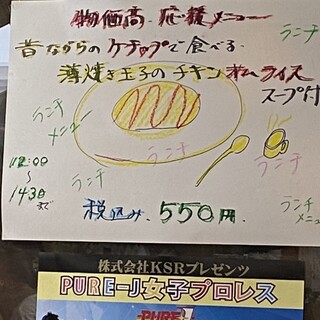 物価高 応援メニュー
ランチ
昔ながらのケチャップで食べる
薄焼き玉子のチキンオムライス
スープ付
ランチ
メニュー
ランチ
ランチ
ランチ
12:00
～
14:30
まで
ランチ
メニュ
税込み.550円.
株式会社KSRプレゼンツ
PURE-J女子プロレス
PURE-J